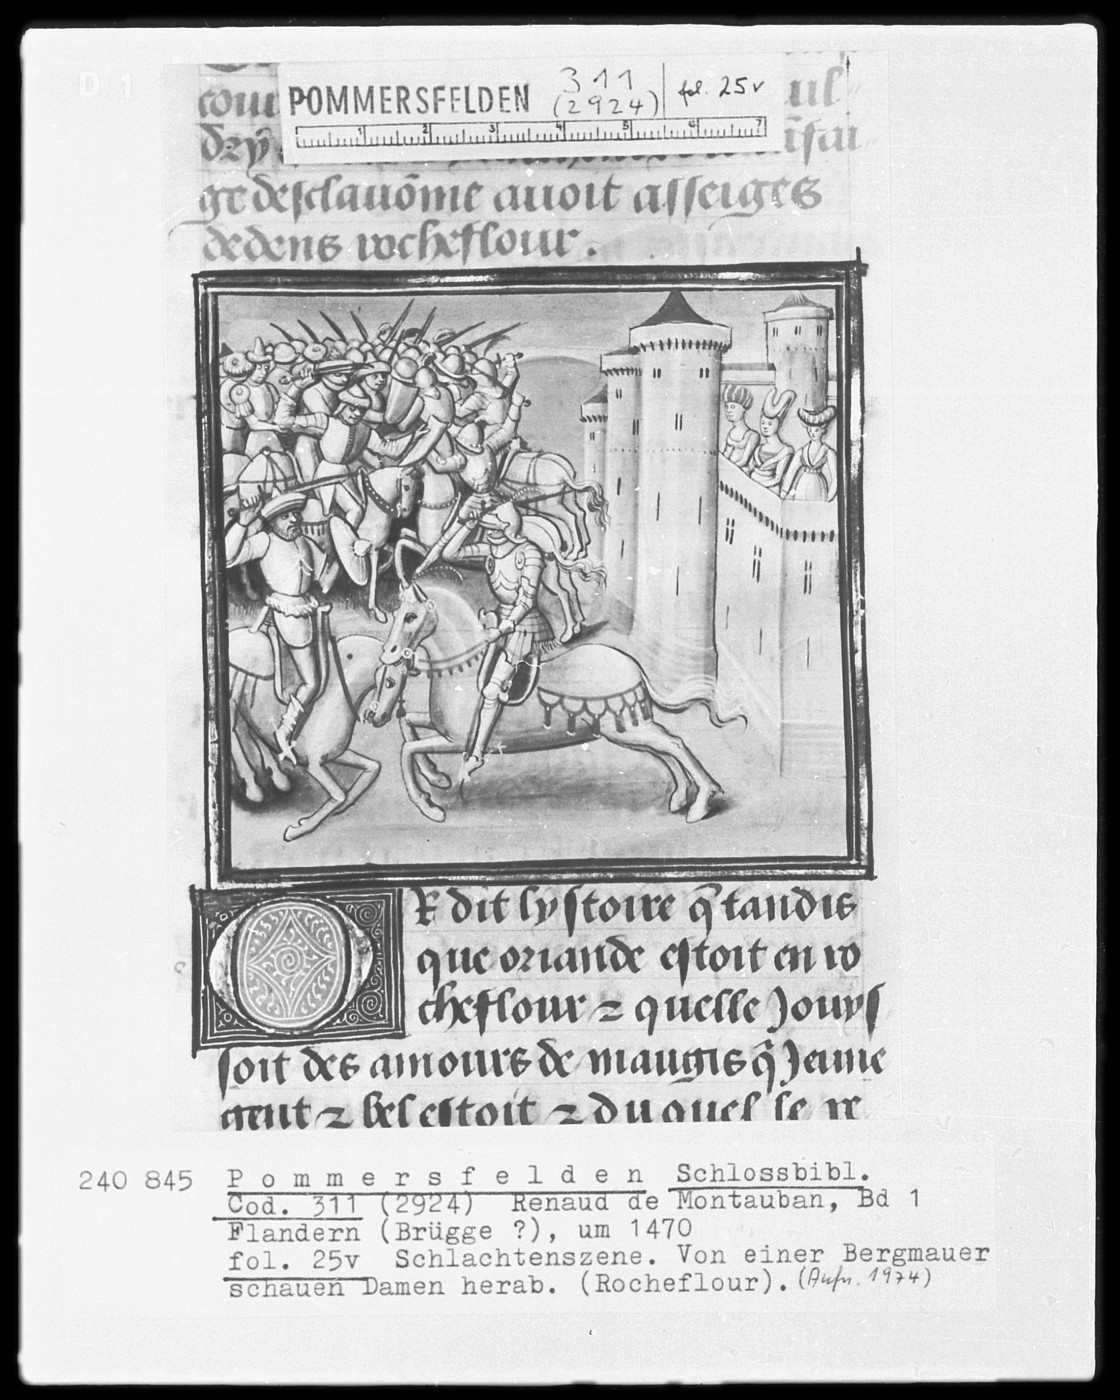 D 1
POMMERSFELDEN 311 (2924) fol. 25v
1 2 3 4 5 6 7
ge desclauōnie auoit asseiges
dedens rocheflour.
Or dit lystoire q̄ tandis
que oriande estoit en ro
cheflour ⁊ quelle Jouys
soit des amours de maugis q̄ Jeune
gent ⁊ bel estoit ⁊ du quel le re
240 845 Pommersfelden Schlossbibl.
Cod. 311 (2924) Renaud de Montauban, Bd 1
Flandern (Brügge ?), um 1470
fol. 25v Schlachtenszene. Von einer Bergmauer
schauen Damen herab. (Rocheflour). (Aufn. 1974)